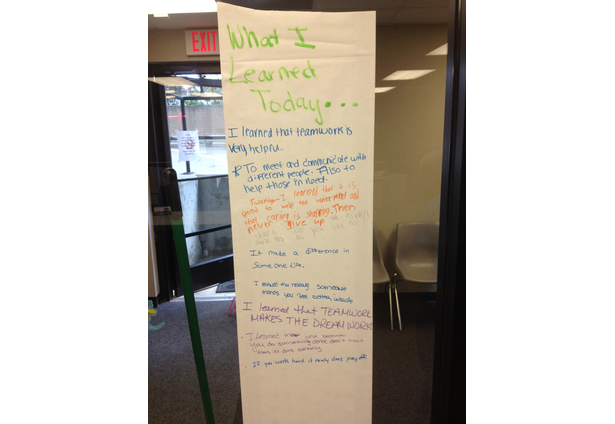 EXIT
What I
Learned
Today...
I learned that teamwork is
very helpful.
* To meet and communicate with
different people. Also to
help those in need.
I learned that it is
good to help the
caring is sharing. Then
never give up
you like to
It made a difference in
Some one Life.
Someone
makes you feel better inside
I learned that TEAMWORK
MAKES THE DREAM WORK
I learned just because
you do something once doesn't mean
If you work hard it really does pay off